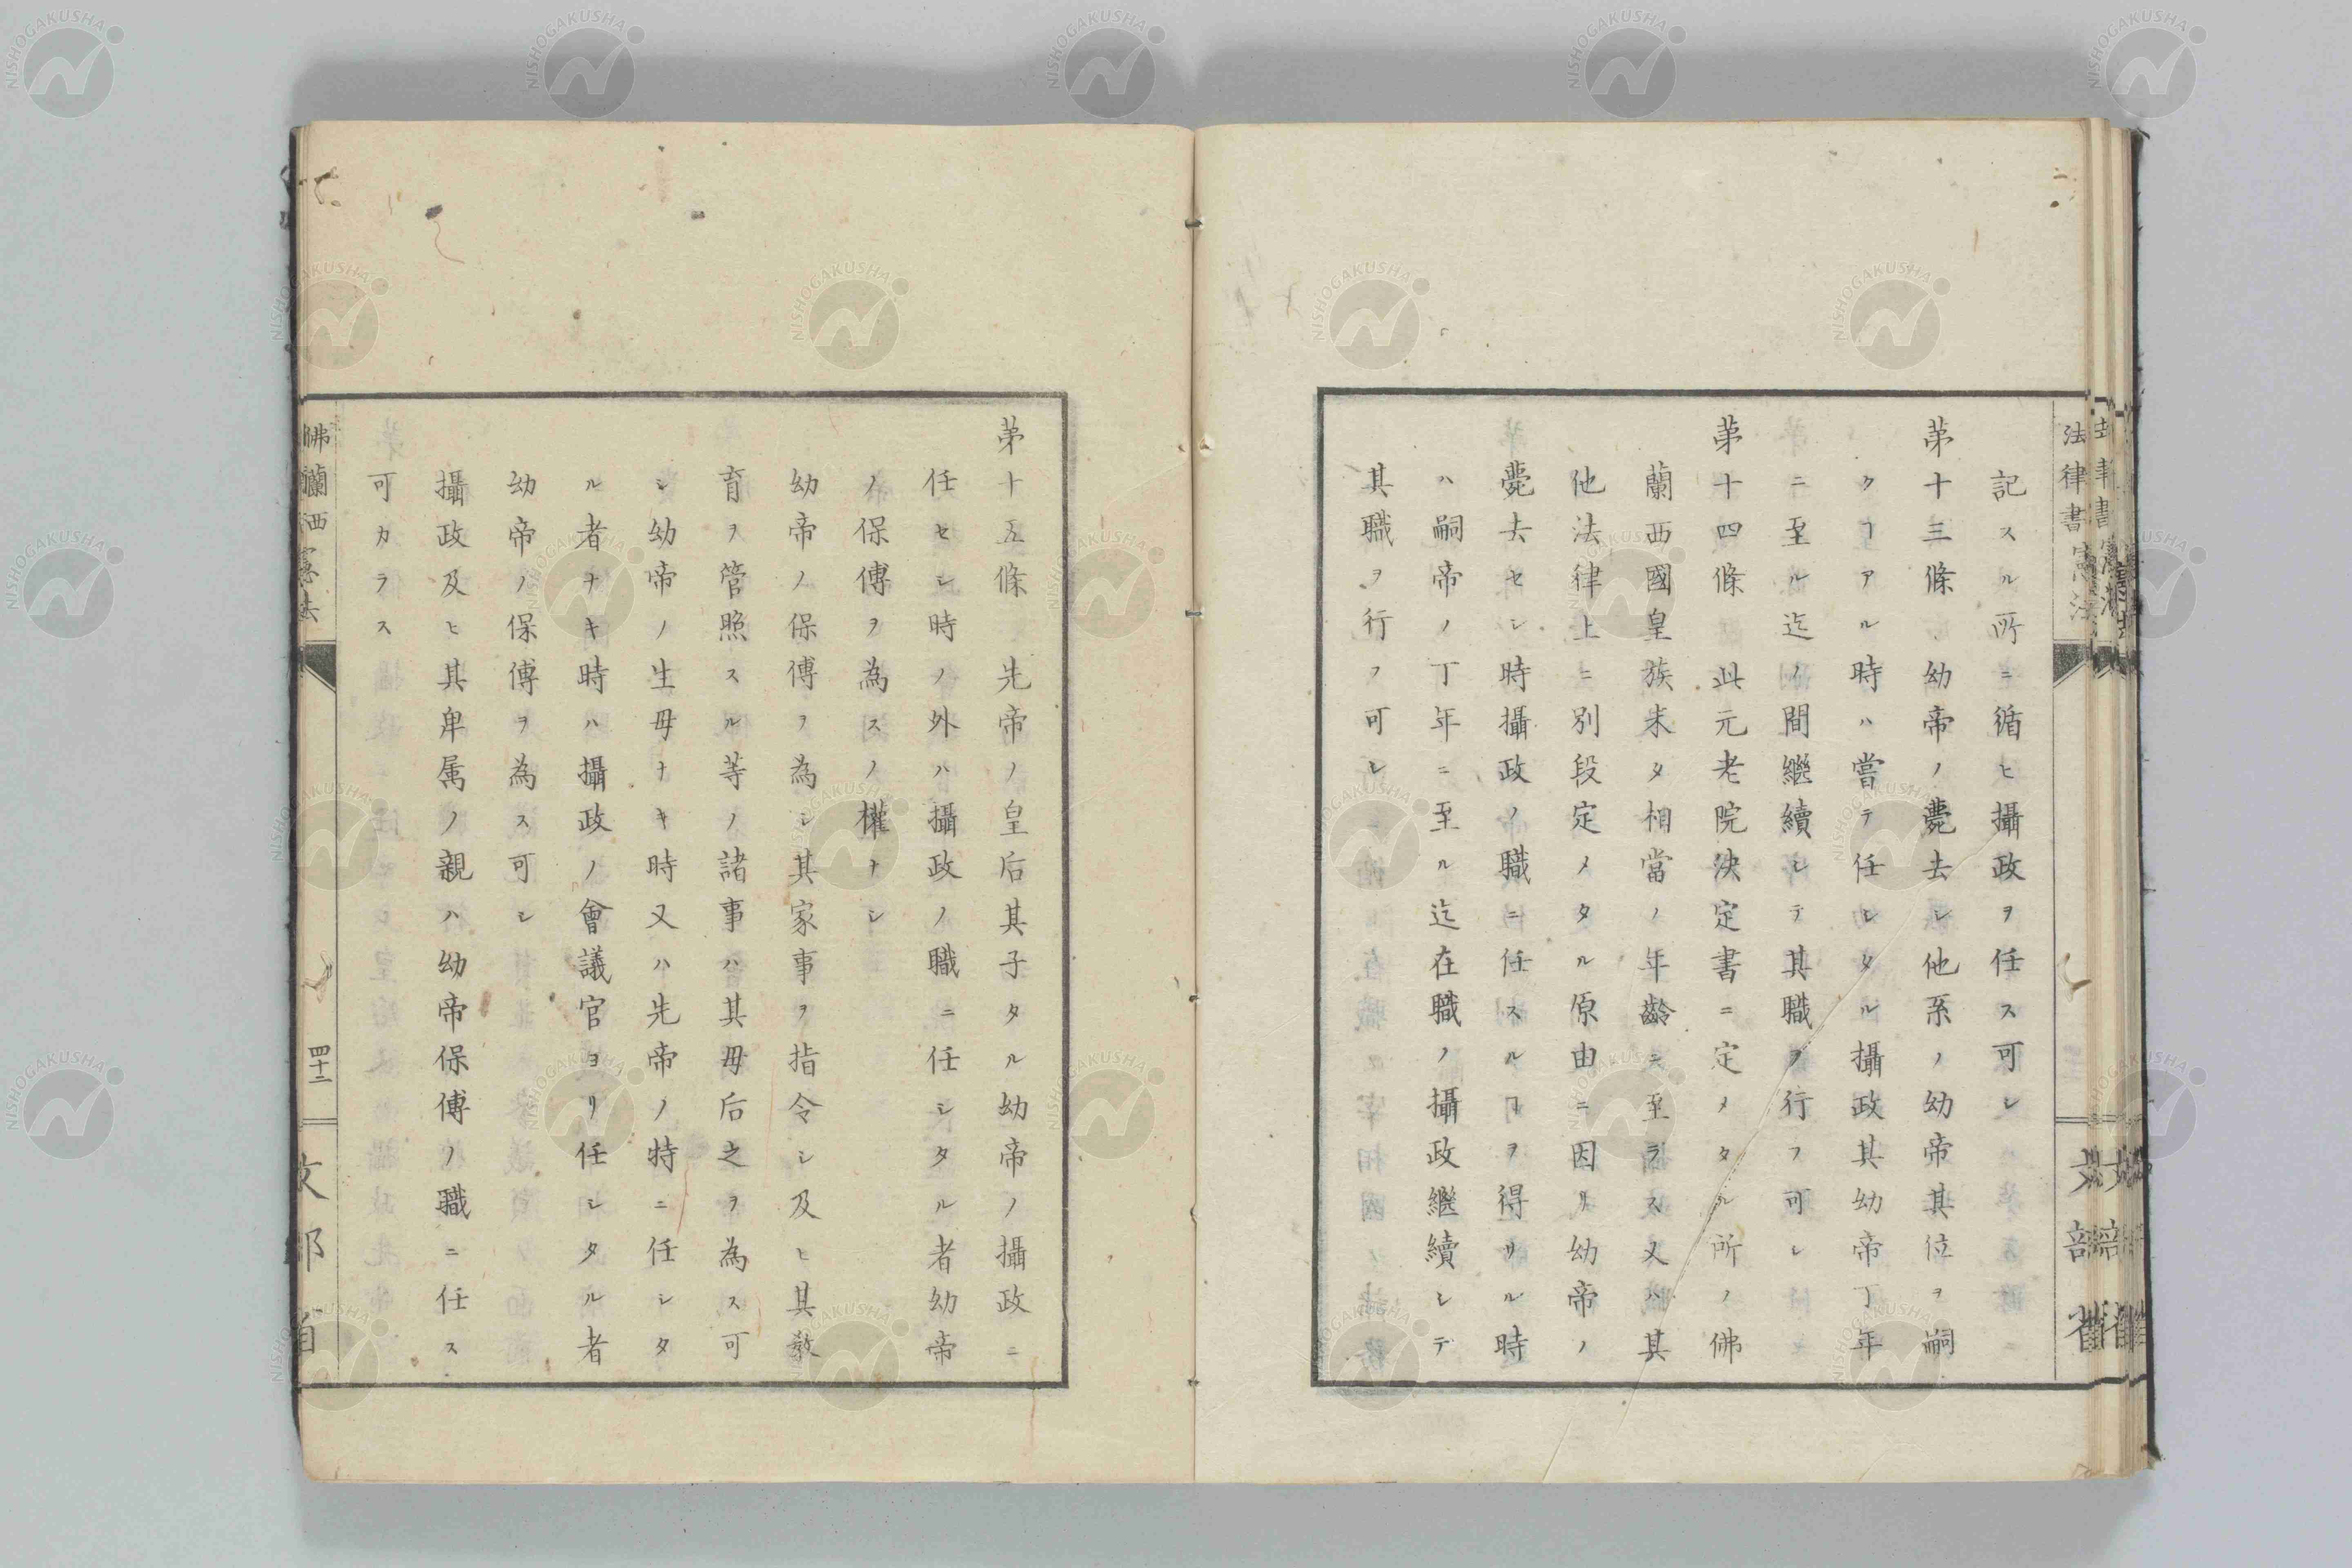 記スル所ニ循ヒ攝政ヲ任ス可シ
苐十三條 幼帝ノ薨去シ他系ノ幼帝其位ヲ嗣
クヿアル時ハ當テ任シタル攝政其幼帝丁年
ニ至ル迄ノ間継續シテ其職ヲ行フ可シ
苐十四條 此元老院决定書ニ定メタル所ノ佛
蘭西國皇族未タ相當ノ年齢ニ至ラス又ハ其
他法律上ニ別段定メタル原由ニ因リ幼帝ノ
薨去セシ時攝政ノ職ニ任スルヿヲ得サル時
ハ嗣帝ノ丁年ニ至ル迄在職ノ攝政継續シテ
其職ヲ行フ可シ
苐十五條 先帝ノ皇后其子タル幼帝ノ攝政ニ
任セシ時ノ外ハ攝政ノ職ニ任シタル者幼帝
ノ保傅ヲ為スノ權ナシ
幼帝ノ保傅ヲ為シ其家事ヲ指令シ及ヒ其敎
育ヲ管照スル等ノ諸事ハ其母后之ヲ為ス可
シ幼帝ノ生母ナキ時又ハ先帝ノ特ニ任シタ
ル者ナキ時ハ攝政ノ會議官ヨリ任シタル者
幼帝ノ保傅ヲ為ス可シ
攝政及ヒ其卑属ノ親ハ幼帝保傅ノ職ニ任ス
可カラス
佛蘭西憲法
四十二
文部省
法律書 憲法
文部省
NISHOGAKUSHA